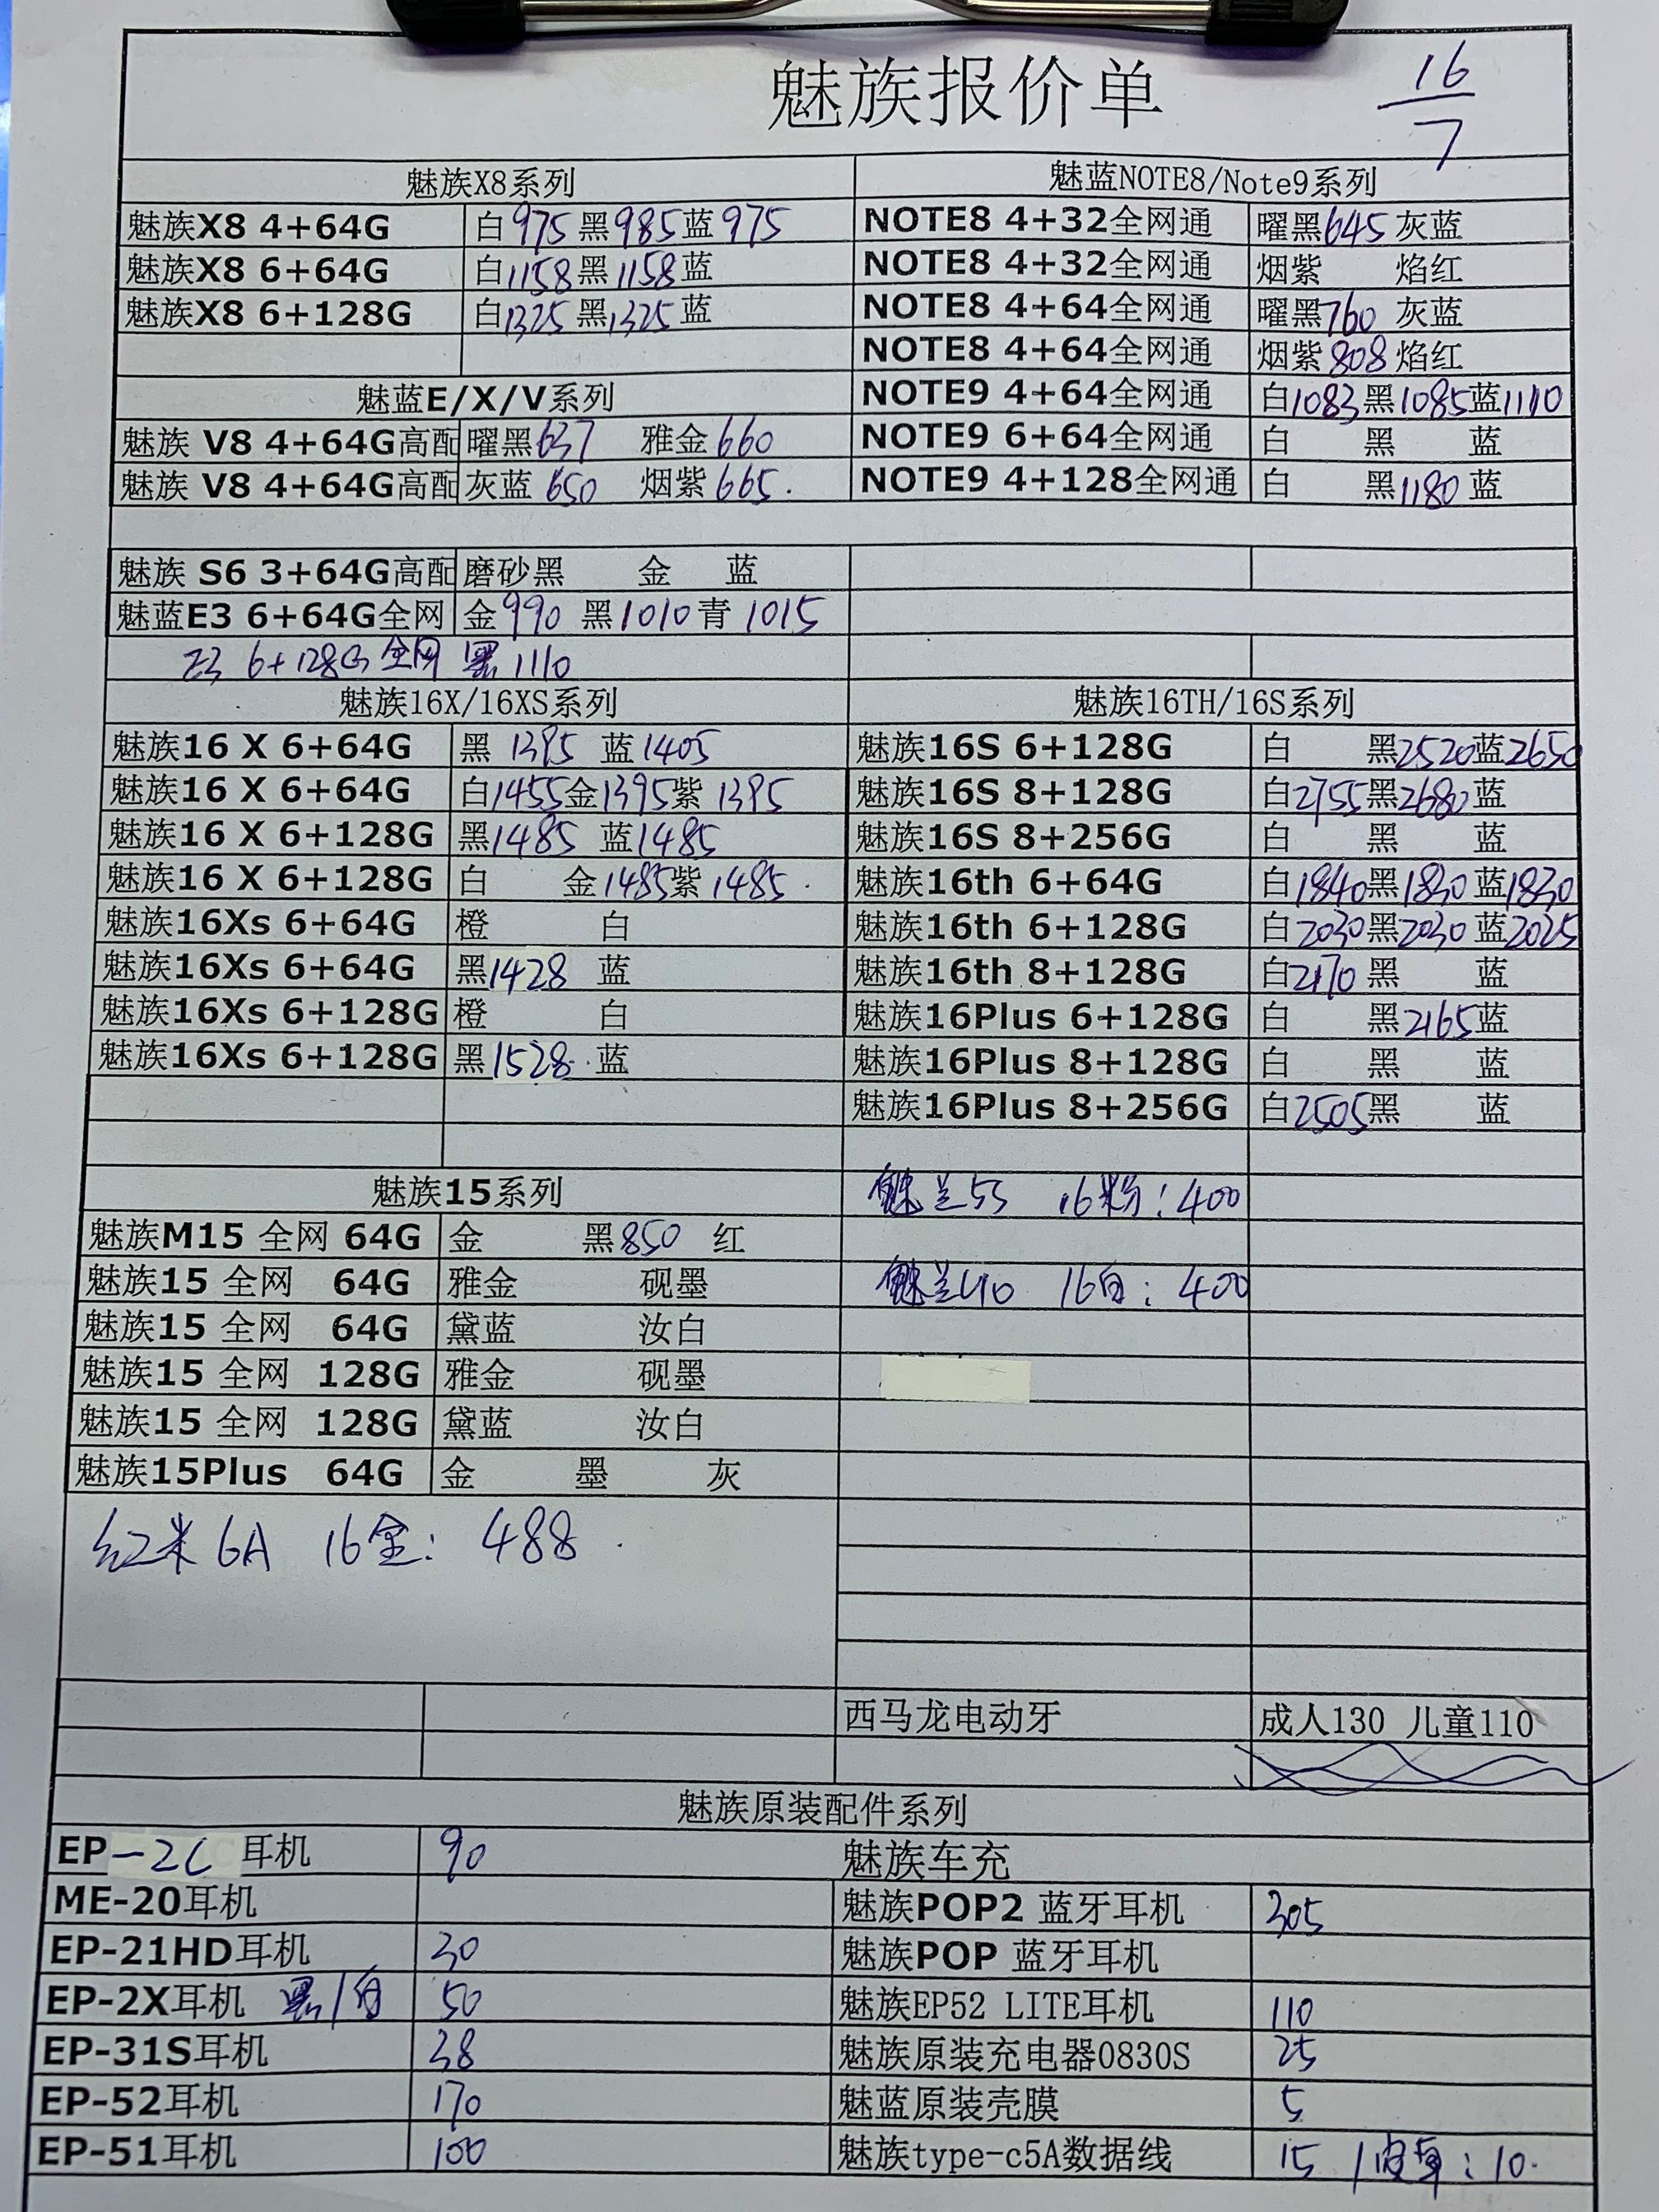 魅族报价单 16/7
魅族X8系列 魅蓝NOTE8/Note9系列
魅族X8 4+64G 白975 黑985 蓝975 NOTE8 4+32全网通 曜黑645 灰蓝
魅族X8 6+64G 白1158 黑1158 蓝 NOTE8 4+32全网通 烟紫 焰红
魅族X8 6+128G 白1325 黑1325 蓝 NOTE8 4+64全网通 曜黑760 灰蓝
NOTE8 4+64全网通 烟紫808 焰红
魅蓝E/X/V系列 NOTE9 4+64全网通 白1083 黑1085 蓝1110
魅族 V8 4+64G高配 曜黑637 雅金660 NOTE9 6+64全网通 白 黑 蓝
魅族 V8 4+64G高配 灰蓝650 烟紫665. NOTE9 4+128全网通 白 黑1180 蓝
魅族 S6 3+64G高配 磨砂黑 金 蓝
魅蓝E3 6+64G全网 金990 黑1010 青1015
E3 6+128G全网 黑1110
魅族16X/16XS系列 魅族16TH/16S系列
魅族16 X 6+64G 黑1395 蓝1405 魅族16S 6+128G 白 黑2520 蓝2650
魅族16 X 6+64G 白1455 金1395 紫1395 魅族16S 8+128G 白2755 黑2680 蓝
魅族16 X 6+128G 黑1485 蓝1485 魅族16S 8+256G 白 黑 蓝
魅族16 X 6+128G 白 金1485 紫1485. 魅族16th 6+64G 白1840 黑1830 蓝1830
魅族16Xs 6+64G 橙 白 魅族16th 6+128G 白2030 黑2030 蓝2025
魅族16Xs 6+64G 黑1428 蓝 魅族16th 8+128G 白2170 黑 蓝
魅族16Xs 6+128G 橙 白 魅族16Plus 6+128G 白 黑2165 蓝
魅族16Xs 6+128G 黑1528 蓝 魅族16Plus 8+128G 白 黑 蓝
魅族16Plus 8+256G 白2505 黑 蓝
魅族15系列 魅兰5S 16粉:400
魅族M15 全网 64G 金 黑850 红
魅族15 全网 64G 雅金 砚墨 魅兰U10 16白:400
魅族15 全网 64G 黛蓝 汝白
魅族15 全网 128G 雅金 砚墨
魅族15 全网 128G 黛蓝 汝白
魅族15Plus 64G 金 墨 灰
红米6A 16金:488.
西马龙电动牙 成人130 儿童110
魅族原装配件系列
EP-2C耳机 90 魅族车充
ME-20耳机 魅族POP2 蓝牙耳机 305
EP-21HD耳机 30 魅族POP 蓝牙耳机
EP-2X耳机 黑/白 50 魅族EP52 LITE耳机 110
EP-31S耳机 38 魅族原装充电器0830S 25
EP-52耳机 170 魅蓝原装壳膜 5
EP-51耳机 100 魅族type-c5A数据线 15 / :10.